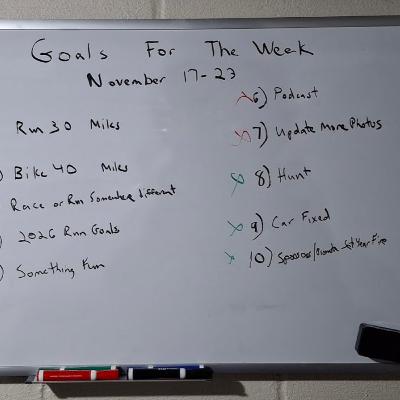 Goals For The Week
November 17-23
Run 30 Miles
) Bike 40 Miles
Race or Run Somewhere different
) 2026 Run Goals
) Something Fun
6) Podcast
7) Update More Photos
8) Hunt
9) Car Fixed
10) Year